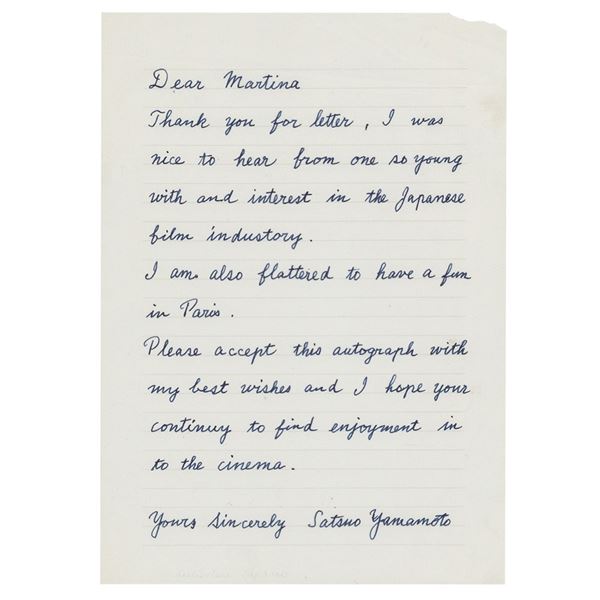 Dear Martina
Thank you for letter, I was
nice to hear from one so young
with and interest in the Japanese
film industory.
I am also flattered to have a fun
in Paris.
Please accept this autograph with
my best wishes and I hope your
continuy to find enjoyment in
to the cinema.
Yours Sincerely Satsuo Yamamoto